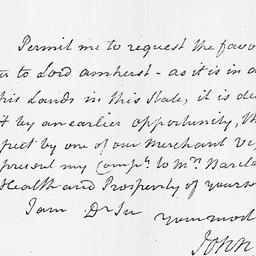 Permit me to request the favo
to Lord amherst - as it is in a
his Lands in this State, it is de
by an earlier opportunity, th
pect by one of our Merchant Ve
present my Compts. to Mrs. Barcla
Health and Prosperity of yourse
I am Dr Sir
your most
John